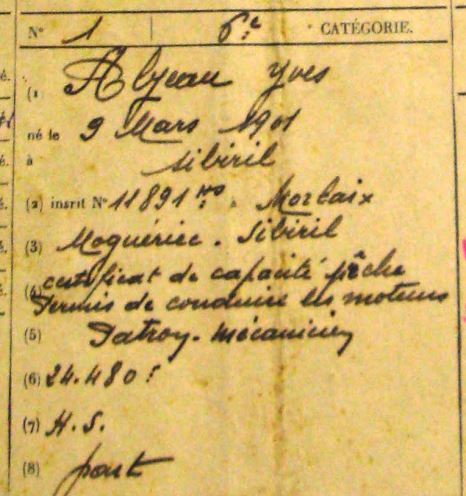 N° 1 6.e CATÉGORIE.
(1 Aljean Yves
né le 9 Mars 1901
à Sibiril
(2) insrit N° 11891 à Morlaix
(3) Moguériec. Sibiril
(4) certificat de capacité pêche
Permis de conduire les moteurs
(5) Patron-mécanicien
(6) 24.480
(7) H.S.
(8) pont